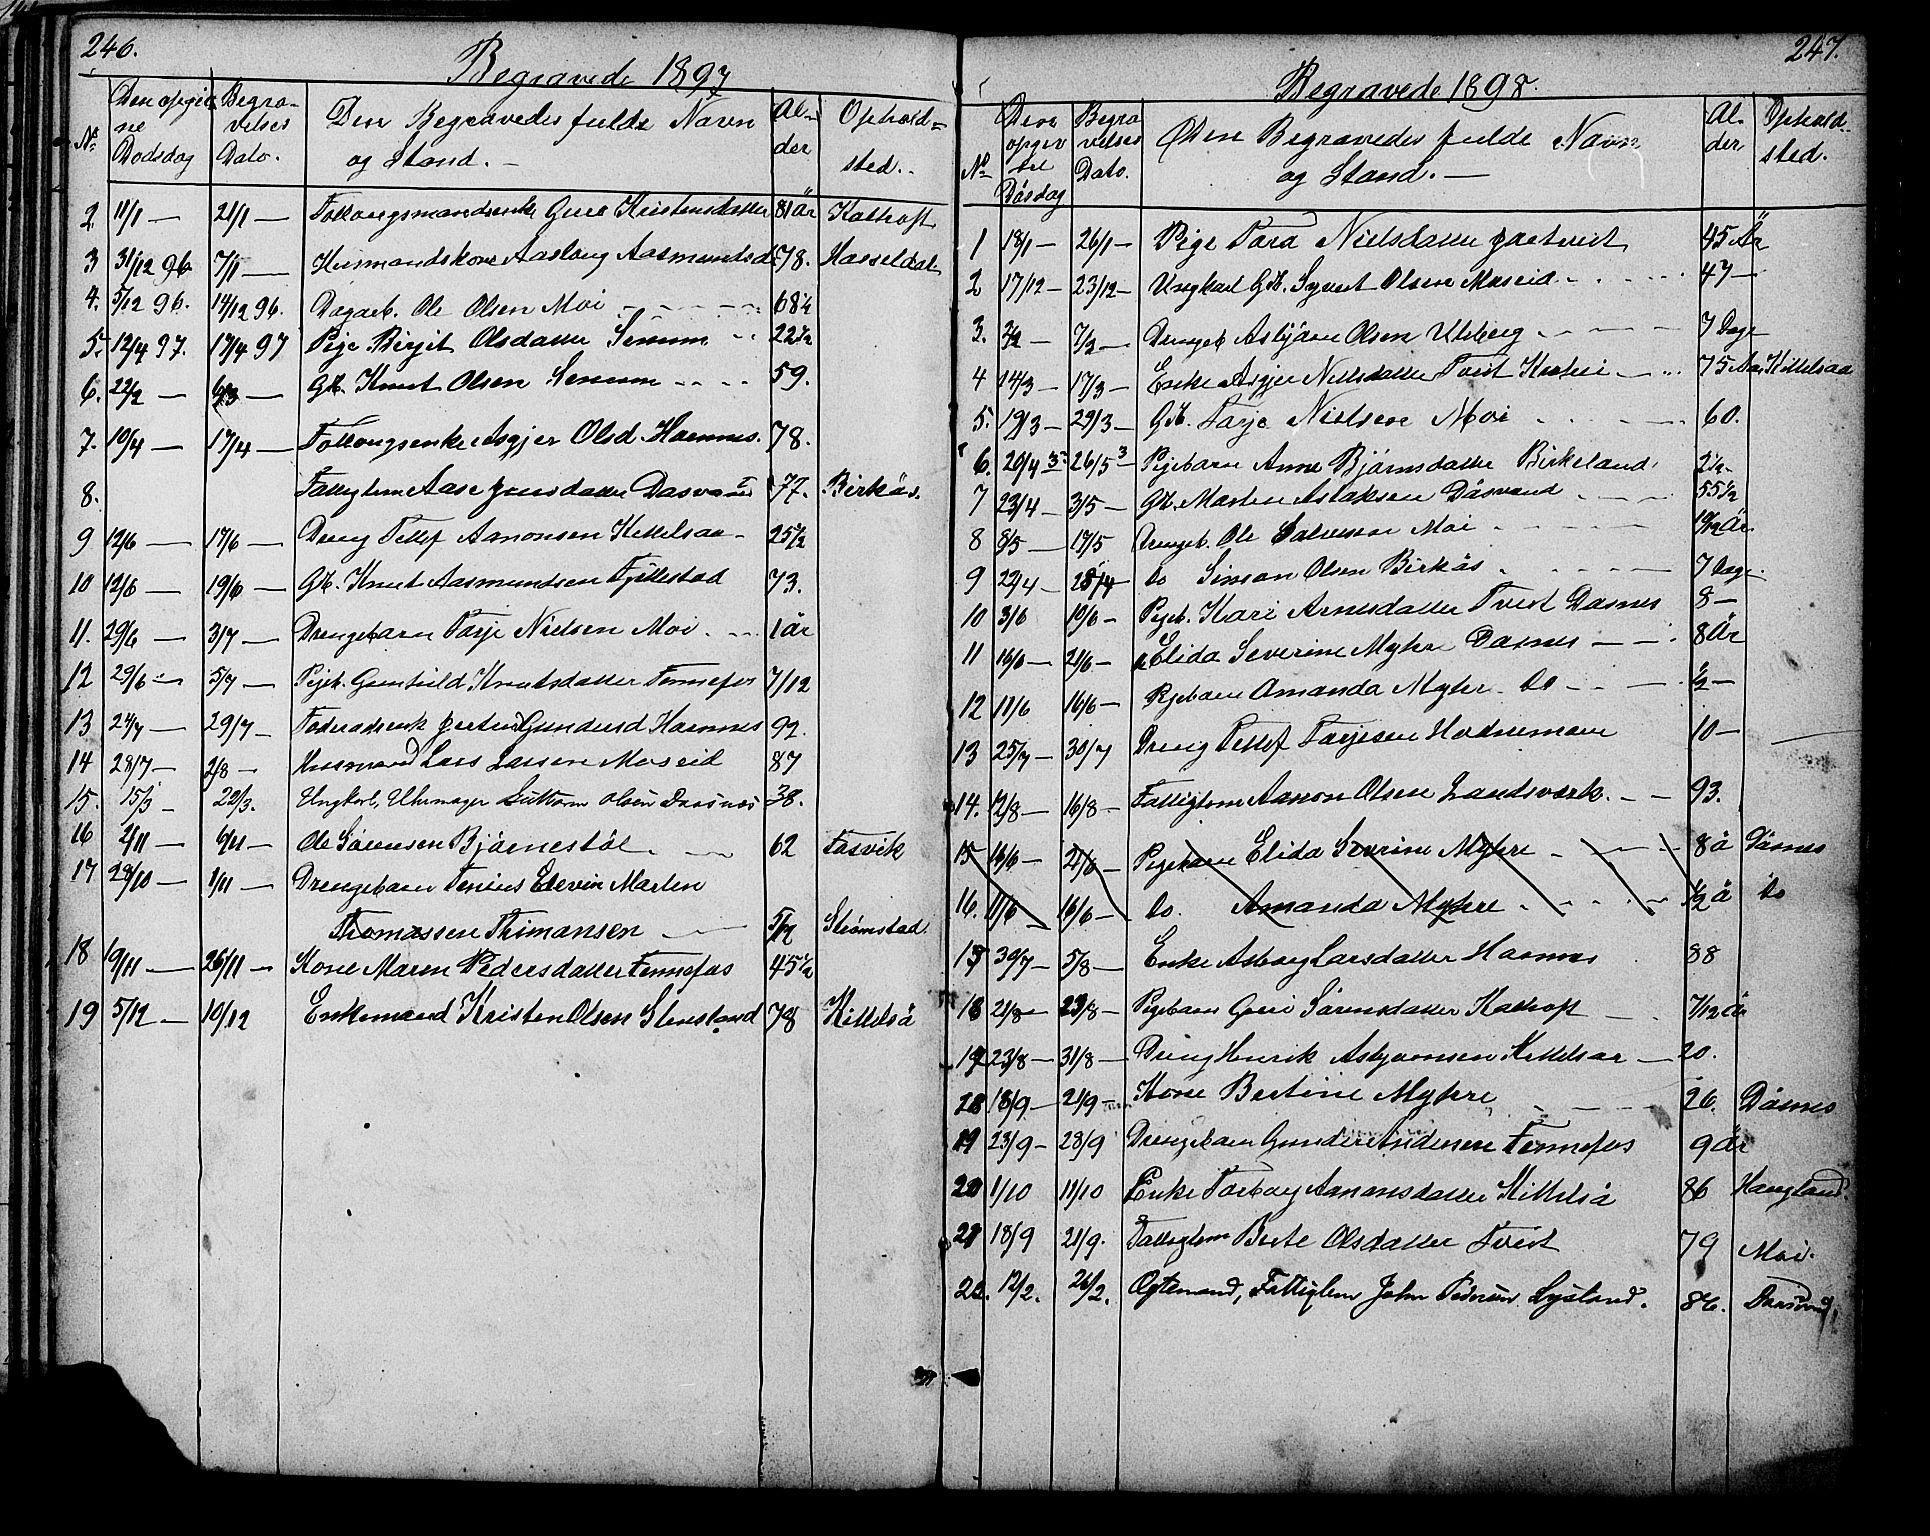 246.
Begravede 1897
No
Den opgivne Dødsdag
Begravelses Dato.
Den Begravedes fulde Navn og Stand. —
Alder
Opholdsted. -
2. 11/1 — 21/1 — Kristensdatter 81 år Kalhoft
3 31/12 96 7/1 — Husmandskone Aaslaug Aasmundsd. 78. Hasseldal
4. 5/12 96. 14/12 96. Dagarb. Ole Olsen Moi 68½
5. 12/4 97. 17/4 97 Pige Birgit Olsdatter Senum 22½
6. 22/2 — 6/3 Gb. Knut Olsen Senum 59.
7. 10/4 — 17/4 — Asgjer Olsd. Haernes. 78.
8. Fattiglem Aase Jensdatter 77. Birkås.
9 12/6 — 17/6 — Dreng Tellef Aanonsen Kittelsaa - 25½
10 12/6 — 19/6 — Gb. Knut Aasmundsen Fjellestad 73.
11. 29/6 — 3/7 — Drengebarn Tarje Nielsen Moi. 1 år
12 29/6 — 5/7 — Pigeb. Gunhild Knutsdatter Fennefos 7/12
13 24/7 — 29/7 — Gundersd Haernes 92.
14 28/7 — 2/8 — Husmand Lars Larsen Moseid 87
15. 15/3 - 22/3. Ungkarl, Uhrmager Guttorm Olsen Daasnes 38.
16 2/11 — 6/11 — Ole Sørensen Bjørnestøl 62 Fasvik
17 28/10 — 1/11 — Drengebarn Tenius Edevin Martin
Thomassen Thimansen 5/12 Strømstad.
18 19/11 — 26/11 — Kone Maren Pedersdatter Fennefos 45½
19 5/12 — 10/12 Enkemand Kristen Olsen Stenstand 78 Kittelså
247.
Begravede 1898.
No
Den opgivne Døsdag
Begravelses Dato.
Den Begravedes fulde Navn og Stand. —
Alder
Opholdsted.
1 18/1 — 26/1 — Pige Tara Nielsdatter 45 År
2 17/12 — 23/12 — Ungkarl Gb. Syvert Olsen Moseid 47 —
3. 2/2 — 7/2 — Drengeb. Asbjørn Olsen Uleberg 7 Dage
4 14/3 — 17/3 — Enke Asgjer Nielsdatter Tveit 75 Aar Kittelsaa
5. 19/3 — 29/3 — Gb. Tarje Nielsen Moi 60.
6. 20/4 26/5 Pigebarn Anne Bjørnsdatter Birkeland.
7 23/4 — 3/5 — Gb. Morten Aslaksen Dåsvand 55½
8 8/5 — 17/5 Drengeb. Ole Salvesen Moi
9 22/4 — 28/4 — Do Simon Olsen Birkås. 7 Dage
10 3/6 10/6 — Pigeb. Kari Arnesdatter Tveit Dasnes 8 —
11 16/6 — 21/6 — Elida Severine Myhre Dasnes — 8 År
12 11/6 16/6 — Pigebarn Amanda Myhre Do ½ —
13 25/7 — 30/7 Dreng Tellef Tarjesen 10 —
14. 12/8 — 16/8 — Fattiglem Aanon Olsen Landsværk. — 93.
15 16/6 — 21/6 — Pigebarn Elida Severine Myhre 8 å Dåsnes
16. 11/6 16/6 — Do. Amanda Myhre ½ å Do
15 30/7 — 5/8 — Enke Asborg Larsdatter Haernes 88
16 21/8 — 23/8 — Pigebarn Guri Sørensdatter Kalhoft 7/12 år
17 23/8 — 31/8 — Dreng Henrik Asbjørnsen Kittelsaa — 20.
18 18/9 — 21/9 — Kone Bertine Myhre 26. Dåsnes
19 23/9 — 28/9 Drengebarn Gunder Andersen Fennefos 9 År
20 1/10 11/10 Enke Torborg Aanonsdatter Kittelså 86 Haugland.
21 18/9 21/9. Fattiglem Berte Olsdatter Tveit 79 Moi.
22. 12/2. 26/2. Ægtemand, Fattiglem John Pedersen Lysland. 86.